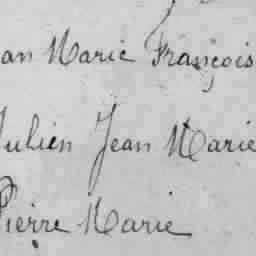 ean Marie François
Julien Jean Marie
Pierre Marie